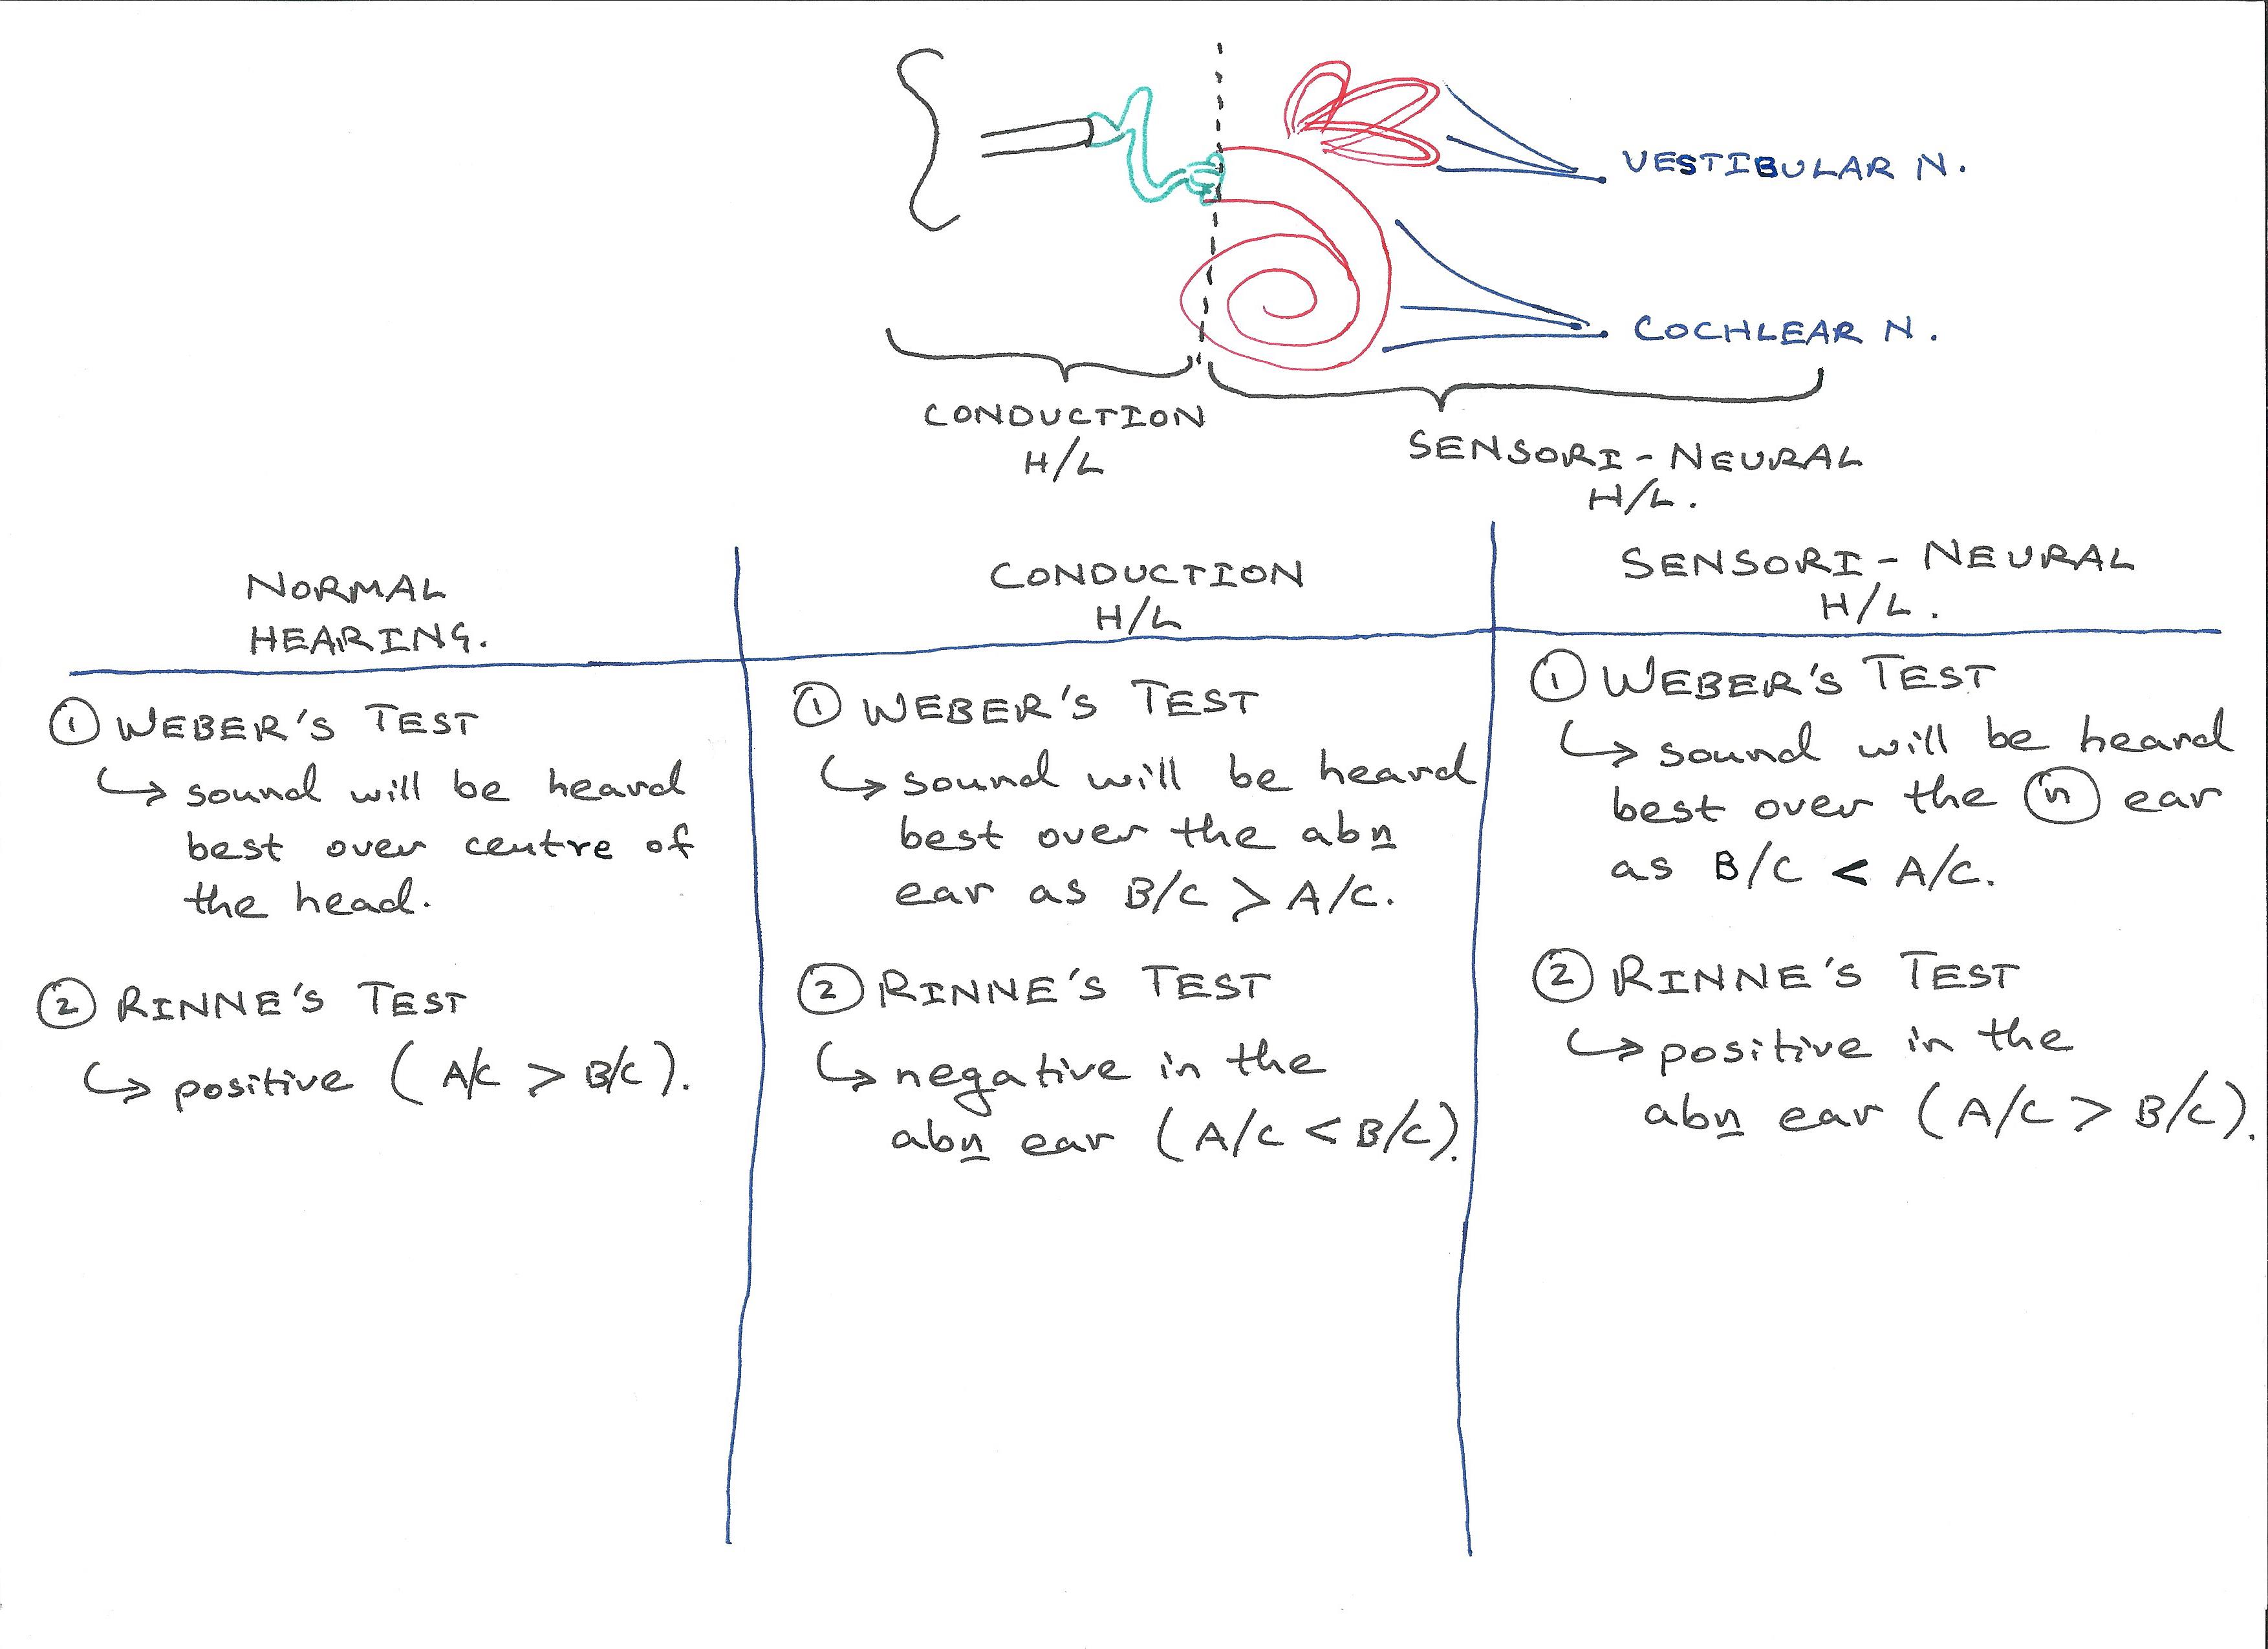 VESTIBULAR N.
COCHLEAR N.
CONDUCTION
H/L
SENSORI-NEURAL
H/L.
NORMAL
HEARING.
① WEBER'S TEST
↳ sound will be heard
best over centre of
the head.
② RINNE'S TEST
↳ positive (A/C > B/C).
CONDUCTION
H/L
① WEBER'S TEST
↳ sound will be heard
best over the abn
ear as B/C > A/C.
② RINNE'S TEST
↳ negative in the
abn ear (A/C < B/C).
SENSORI-NEURAL
H/L.
① WEBER'S TEST
↳ sound will be heard
best over the ⓝ ear
as B/C < A/C.
② RINNE'S TEST
↳ positive in the
abn ear (A/C > B/C).